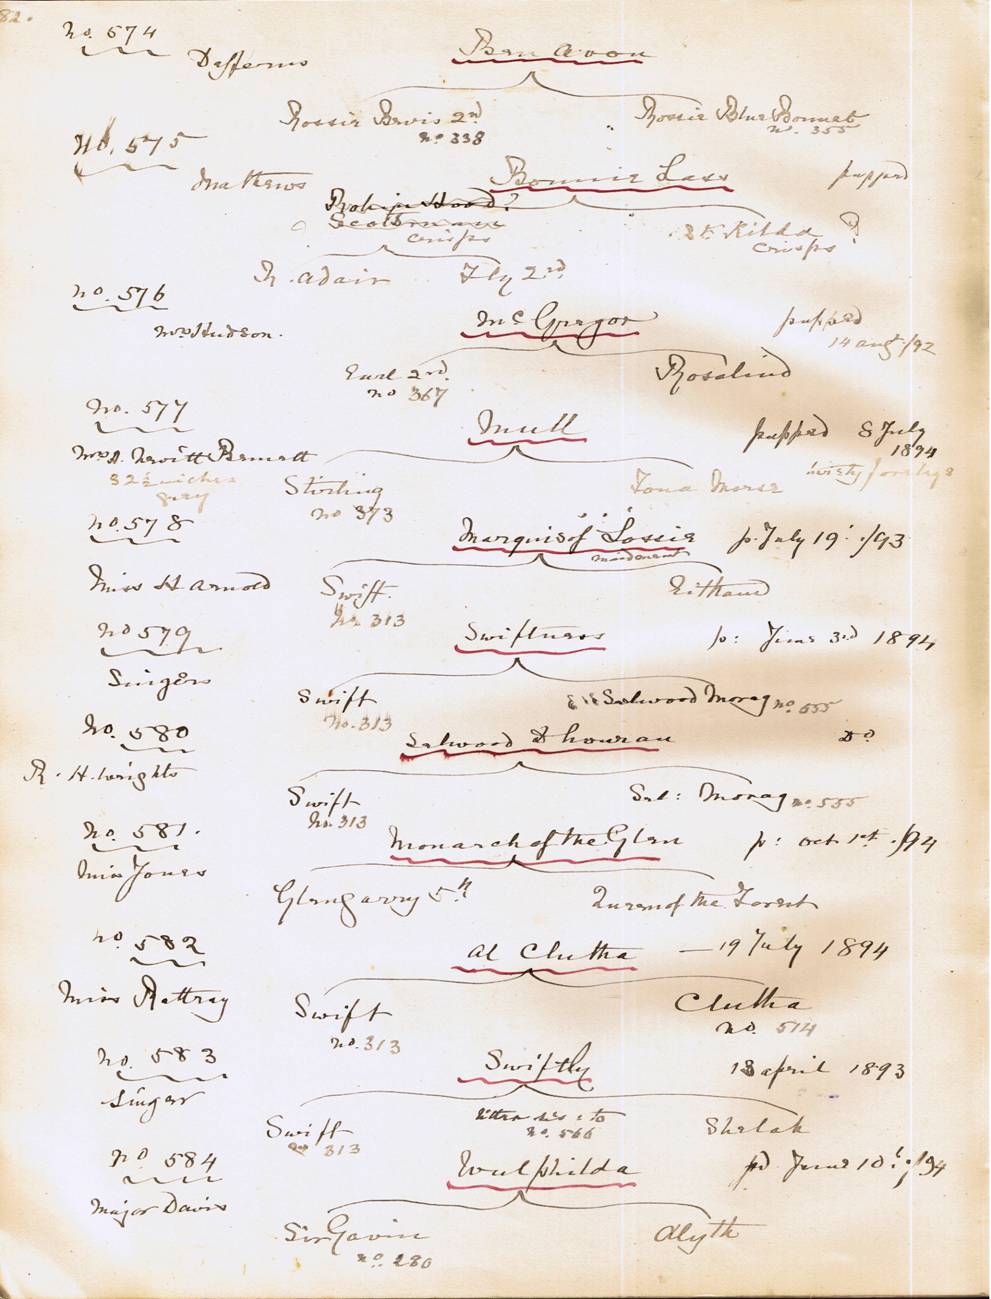 82.
No. 574
Ben Avon
Rossie Bevis 2nd
Rossie Blue Bonnet
No 338
No. 355
No. 575
Mathews
Bonnie Lass
pupped
Robin Hood?
Crisps
St Kilda ?
Crisps
R. Adair
Fly 2nd
No. 576
McGregor
pupped
Mrs Hudson.
14 Aug /92
Earl 2nd
Rosalind
No 367
No. 577
Mull
pupped 8 July
1894
Mrs A. Hewitt Bennett
32½ inches
grey
Stirling
Iona Morse
No 373
No. 578
Marquis of Lossie
p. July 19. /93
Miss H Arnold
Swift.
No 313
No 579
Swiftness
p: June 3rd 1894
Singers
Swift
Salwood Morag No. 555
No. 313
No. 580
Salwood Dhouran
Do
R. H. Wrights
Swift
Sal: Morag No. 555
No. 313
No. 581.
Monarch of the Glen
p: Oct 1st /94
Miss Jones
Glengarry 5th
Queen of the Forest
No 582
Al Clutha
— 19 July 1894
Miss Rattray
Swift
Clutha
No. 313
No. 514
No. 583
Swiftly
18 April 1893
Singer
Swift
litter sis: to
No. 566
Shelah
No 313
No 584
Wulphilda
pd June 10: /94
Major Davis
Sir Gavin
Alyth
No. 280